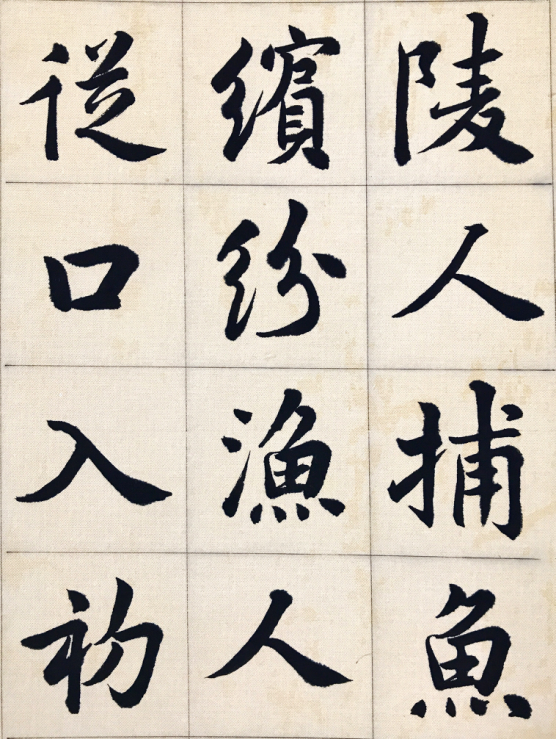 陵人捕魚
繽紛漁人
從口入初